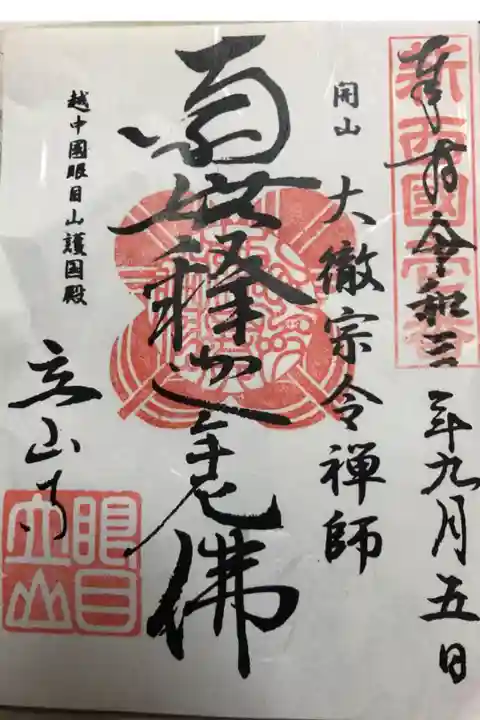 奉拝 令和三年九月五日
開山 大徹宗令禅師
南無釋迦牟尼佛
越中國眼目山護国殿
立山寺
眼目
立山